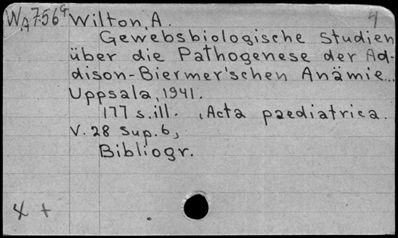 WA756G Wilton, A.
Gewebsbiologische Studien
über die Pathogenese der Ad-
dison-Biermer'schen Anämie...
Uppsala, 1941.
177 s.ill. (Acta paediatrica.
V.28 Sup.6)
Bibliogr.